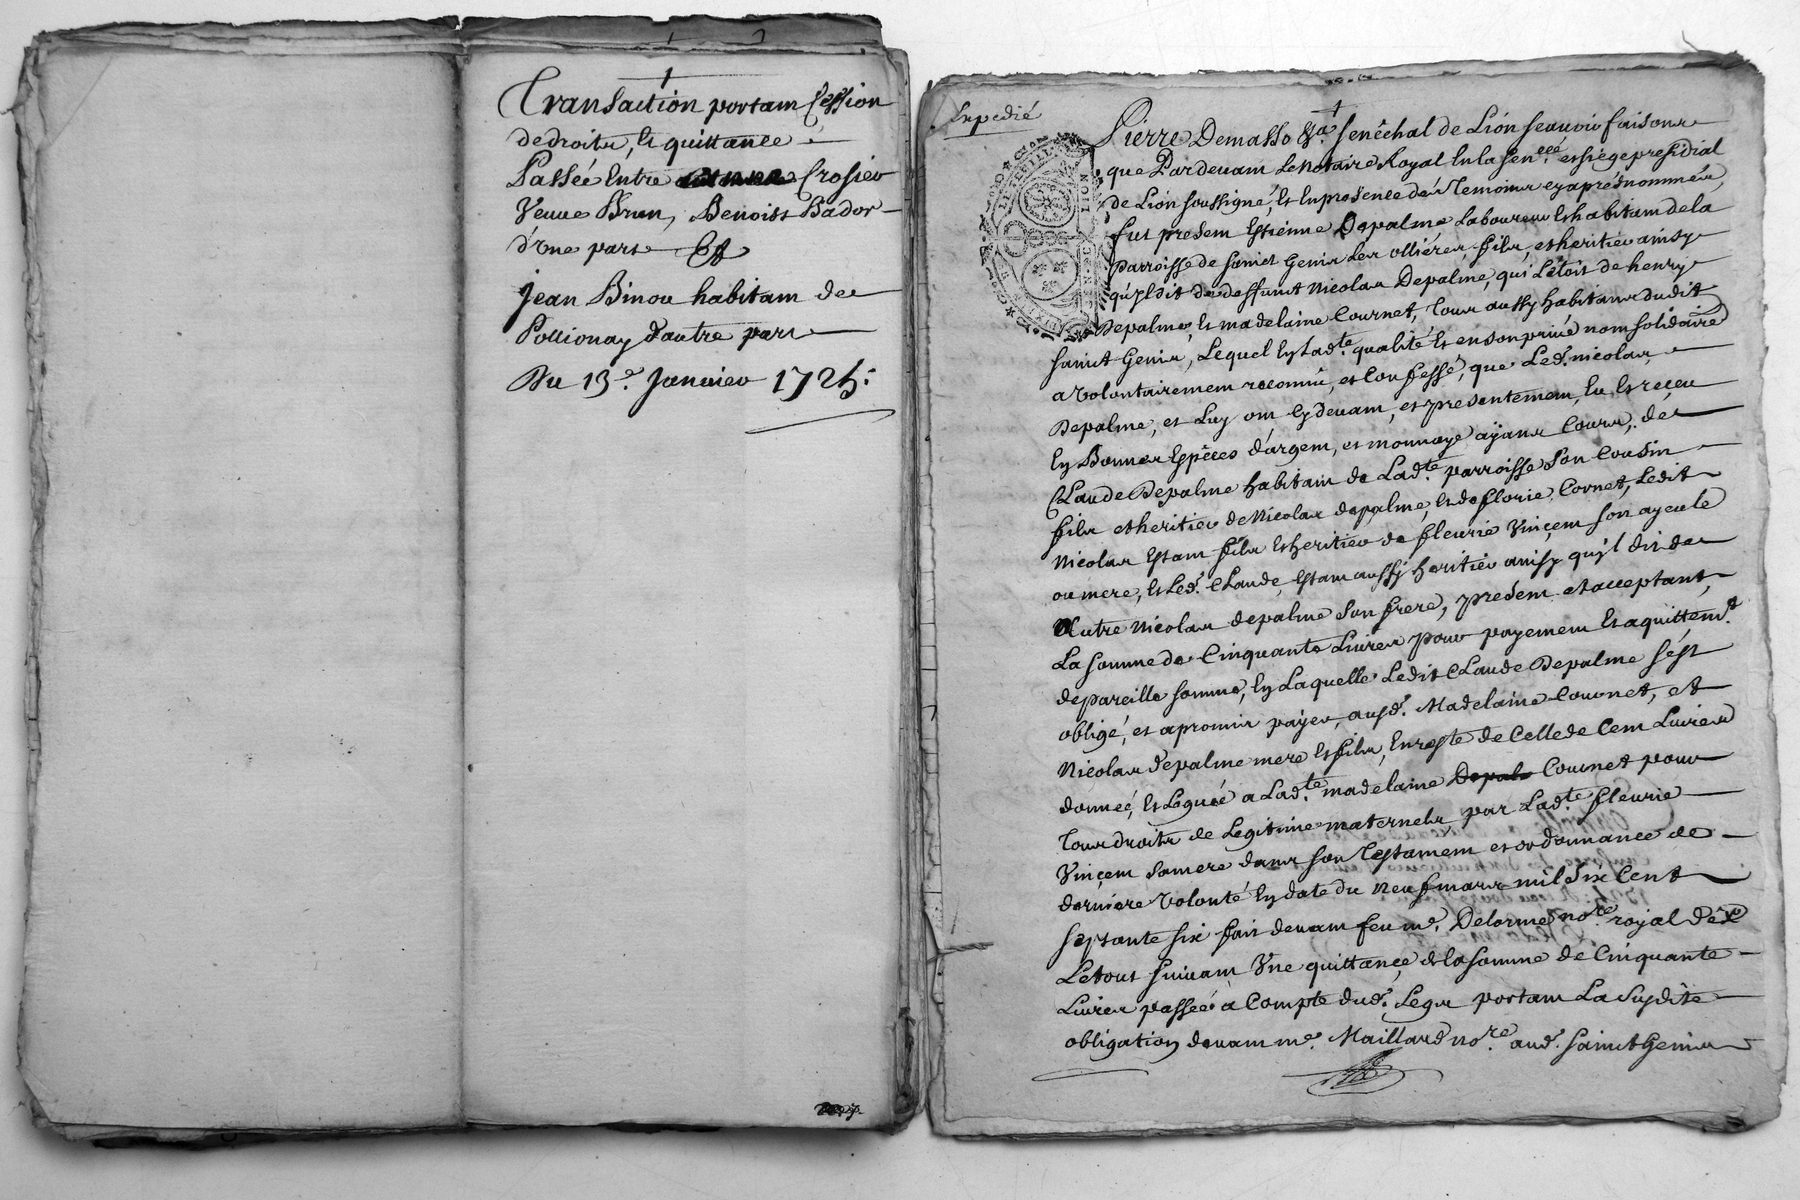 Transaction portam Cession
de droits, et quittance
Passée Entre Crosier
Veuve Brun, Benoist Bador
d'Vne part Et
jean Binou habitam de
Pollionay d'autre part
Du 13e. Januier 172
Expedié
Pierre Demasso Senêchal de Lion scauoir faisons
que Pardeuam Le Notaire Royal En la Sen.ceé et siège presidial
de Lion soussigné, et En presence des Temoins cy après nommés,
fut presem Estienne Depalme Laboureur Et habitam de la
parroisse de sainct Genis Les ollières, fils, et heritier ainsy
qu'jl dit de deffunct Nicolas Depalme, qui L'etoit de henry
Depalme, et madelaine Cournet, Tous aussy habitans dudit
sainct Genis, Lequel En Ladte. qualité et en son priué nom solidaire
a Volontairemem reconnû, et Confessé, que Led. nicolas
Depalme, et Luy om cy deuam, et presentemem, Eu Et reçeu
En Bonnes Espèces d'argem, et monnoye ayans Cours, de
Claude Depalme habitam de Ladte. parroisse son Cousin
fils et heritier de Nicolas depalme, et de florie Cornet, Ledit
Nicolas Estam fils Et heritier de fleurie Vinçem son ayeule
ou mere, et Led. Claude, Estam aussy heritier ainsy qu'jl dit de
Autre Nicolas depalme son frere, presem et acceptant,
La somme de Cinquante Liures pour payemem Et aquittem.t
de pareille somme, En Laquelle Ledit Claude Depalme s'est
obligé, et a promis payer, ausd. Madelaine Cournet, et
Nicolas depalme mere Et fils, En reste de Celle de Cem Liures
donneé, et Leguée a Ladte. madelaine Depal Cournet pour
Tous droits de Legitime maternels, par Ladte. fleurie
Vinçem sa mere dans son Testamem et ordonnance de
derniere Volonté En date du neuf mars mil six Cent
septante six fait deuam feu me. Delorme nore. royal
Letout suiuam Vne quittance de la somme de Cinquante
Liures passée à Compte dud. Legs portam La susdite
obligation deuam me. Maillard nore. aud. sainct Genis